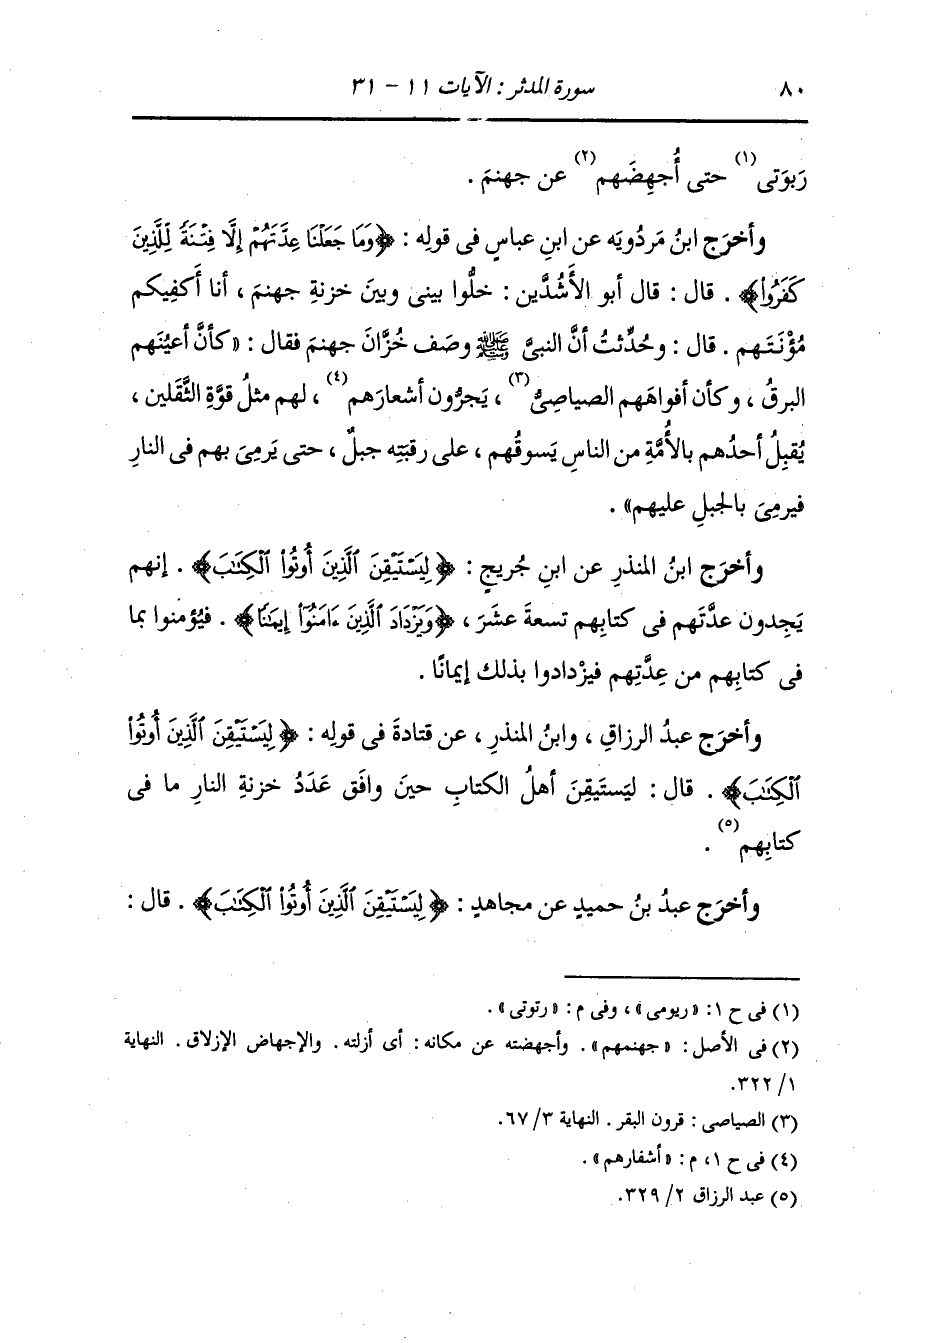 ٨٠ سورة المدثر : الآيات ١١ - ٣١
رَبوَتى(١) حتى أُجهِضَهم(٢) عن جهنمَ .
وأخرَج ابنُ مَردُويَه عن ابنِ عباسٍ فى قولِه : ﴿وَمَا جَعَلْنَا عِدَّتَهُمْ إِلَّا فِتْنَةً لِّلَّذِينَ
كَفَرُوا۟﴾ . قال : قال أبو الأَشُدَّين : خلُّوا بينى وبينَ خزنةِ جهنمَ ، أنا أَكفِيكم
مُؤْنَتَهم . قال : وحُدِّثتُ أنَّ النبىَّ ﷺ وصَف خُزَّانَ جهنمَ فقال : «كأنَّ أعيُنَهم
البرقُ ، وكأن أفواهَهم الصياصِىُّ(٣) ، يَجرُّون أشعارَهم(٤) ، لهم مثلُ قوَّةِ الثَّقَلين ،
يُقبِلُ أحدُهم بالأُمَّةِ من الناسِ يَسوقُهم ، على رقبَتِه جبلٌ ، حتى يَرمِىَ بهم فى النارِ
فيرمِىَ بالجبلِ عليهم» .
وأخرَج ابنُ المنذرِ عن ابنِ جُريجٍ : ﴿لِيَسْتَيْقِنَ ٱلَّذِينَ أُوتُوا۟ ٱلْكِتَٰبَ﴾ . إنهم
يَجِدون عدَّتَهم فى كتابِهم تسعةَ عشَرَ ، ﴿وَيَزْدَادَ ٱلَّذِينَ ءَامَنُوٓا۟ إِيمَٰنًا﴾ . فيُؤمنوا بما
فى كتابِهم من عِدَّتِهم فيزْدادوا بذلك إيمانًا .
وأخرَج عبدُ الرزاقِ ، وابنُ المنذرِ ، عن قتادةَ فى قولِه : ﴿لِيَسْتَيْقِنَ ٱلَّذِينَ أُوتُوا۟
ٱلْكِتَٰبَ﴾ . قال : ليَستَيقِنَ أهلُ الكتابِ حينَ وافَق عَدَدُ خزنةِ النارِ ما فى
كتابِهم(٥) .
وأخرَج عبدُ بنُ حميدٍ عن مجاهدٍ : ﴿لِيَسْتَيْقِنَ ٱلَّذِينَ أُوتُوا۟ ٱلْكِتَٰبَ﴾ . قال :
(١) فى ح ١: «ريومى» ، وفى م : «رتوتى» .
(٢) فى الأصل : «جهنمهم» . وأجهضته عن مكانه : أى أزلته . والإجهاض الإزلاق . النهاية
١/ ٣٢٢.
(٣) الصياصى : قرون البقر . النهاية ٣/ ٦٧.
(٤) فى ح ١، م : «أشفارهم» .
(٥) عبد الرزاق ٢/ ٣٢٩.